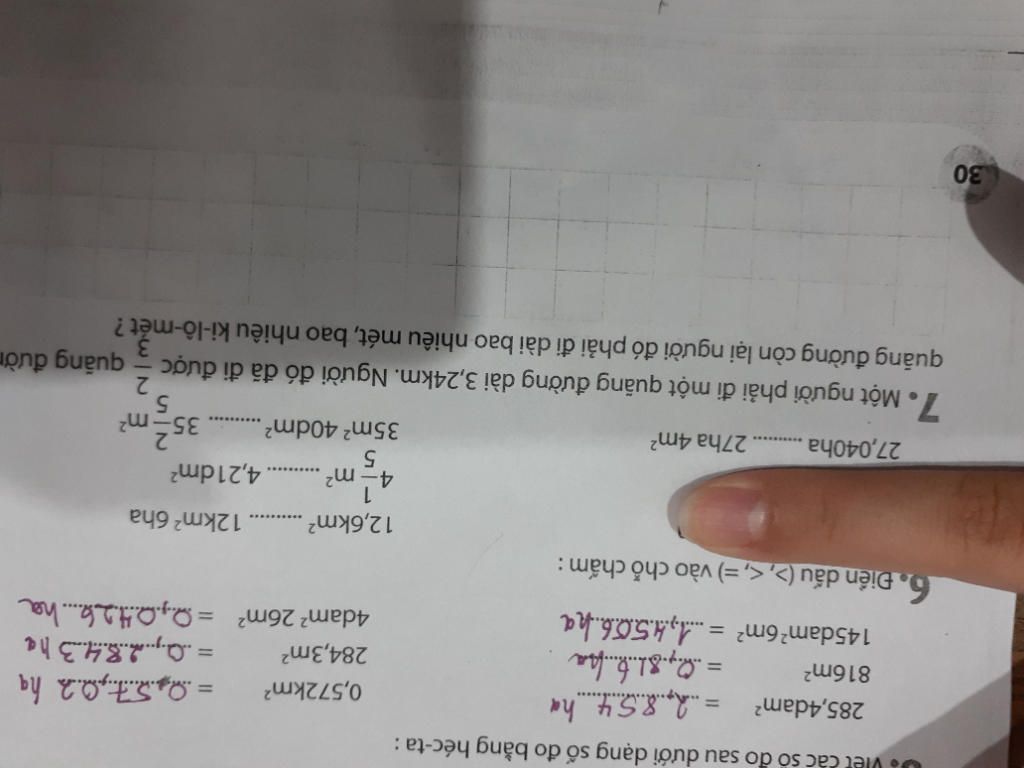 Viết các số đo sau dưới dạng số đo bằng héc-ta :
285,4dam² = 2,854 ha
0,572km² = 0,57,02 ha
816m² = 0,816 ha
284,3m² = 0,2843 ha
145dam²6m² = 1,4506 ha
4dam² 26m² = 0,0426 ha
6. Điền dấu (>, <, =) vào chỗ chấm :
12,6km² .......... 12km² 6ha
4 1/5 m² .......... 4,21dm²
27,040ha .......... 27ha 4m²
35m² 40dm² .......... 35 2/5 m²
7. Một người phải đi một quãng đường dài 3,24km. Người đó đã đi được 2/3 quãng đườn
quãng đường còn lại người đó phải đi dài bao nhiêu mét, bao nhiêu ki-lô-mét ?
30